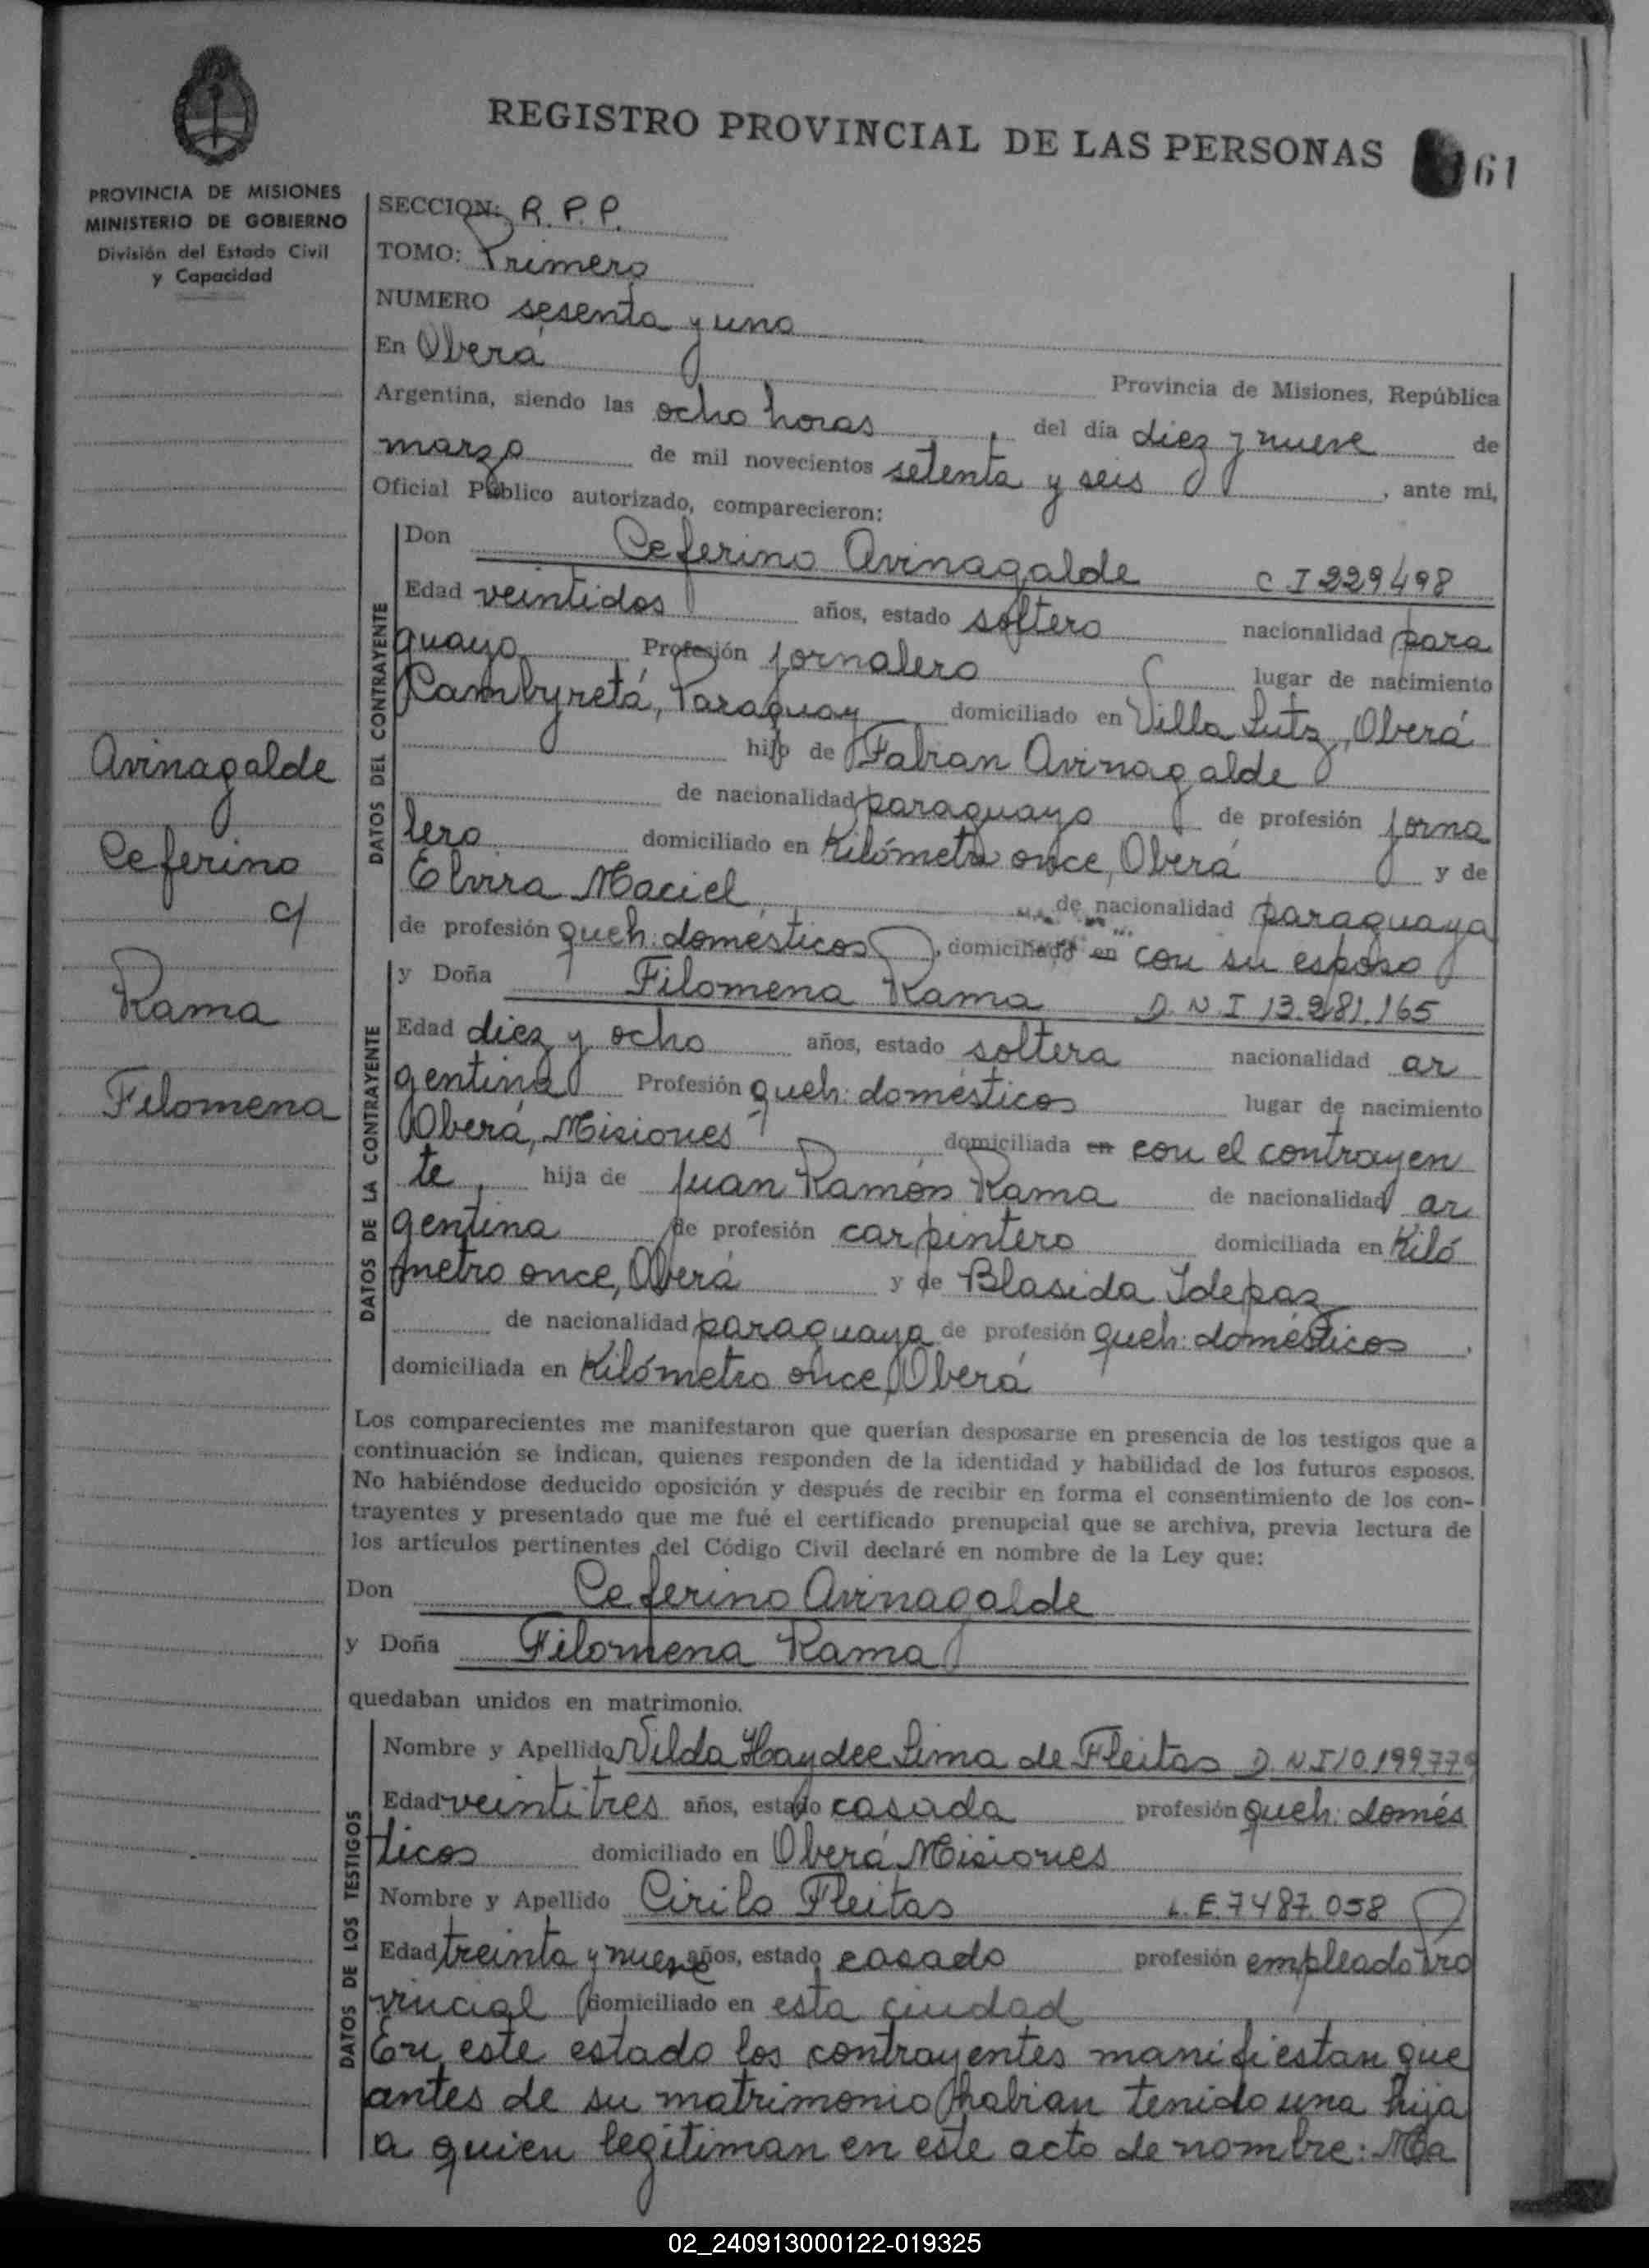 REGISTRO PROVINCIAL DE LAS PERSONAS 161
PROVINCIA DE MISIONES
MINISTERIO DE GOBIERNO
División del Estado Civil
y Capacidad
SECCION: R. P. P.
TOMO: Primero
NUMERO sesenta y uno
En Oberá Provincia de Misiones, República
Argentina, siendo las ocho horas, del día diez y nueve de
marzo de mil novecientos setenta y seis, ante mi,
Oficial Público autorizado, comparecieron:
DATOS DEL CONTRAYENTE
Don Ceferino Avinagalde C I 229498
Edad veintidos años, estado soltero nacionalidad para
guayo Profesión jornalero lugar de nacimiento
Cambyretá, Paraguay domiciliado en Villa Lutz, Oberá
hijo de Fabian Avinagalde
de nacionalidad paraguayo de profesión jorna
lero domiciliado en Kilómetro once, Oberá y de
Elvira Maciel, de nacionalidad paraguaya
de profesión queh: domésticos, domiciliado en con su esposo
Avinagalde
Ceferino
c/
Rama
Filomena
DATOS DE LA CONTRAYENTE
y Doña Filomena Rama D. N. I 13.281.165
Edad diez y ocho años, estado soltera nacionalidad ar
gentina Profesión queh: domésticos lugar de nacimiento
Oberá, Misiones domiciliada en con el contrayen
te, hija de Juan Ramón Rama de nacionalidad ar
gentina de profesión carpintero domiciliada en Kiló
metro once, Oberá y de Blasida Idepaz
de nacionalidad paraguaya de profesión queh: domésticos,
domiciliada en Kilómetro once, Oberá
Los comparecientes me manifestaron que querían desposarse en presencia de los testigos que a
continuación se indican, quienes responden de la identidad y habilidad de los futuros esposos.
No habiéndose deducido oposición y después de recibir en forma el consentimiento de los con-
trayentes y presentado que me fué el certificado prenupcial que se archiva, previa lectura de
los artículos pertinentes del Código Civil declaré en nombre de la Ley que:
Don Ceferino Avinagalde
y Doña Filomena Rama
quedaban unidos en matrimonio.
DATOS DE LOS TESTIGOS
Nombre y Apellido Nilda Haydee Lima de Fleitas D. N. I 10.199.779
Edad veintitres años, estado casada profesión queh: domés
ticos domiciliado en Oberá Misiones
Nombre y Apellido Cirilo Fleitas L. E. 7487.058
Edad treinta y nueve años, estado casado profesión empleado pro
vincial domiciliado en esta ciudad
En este estado los contrayentes manifiestan que
antes de su matrimonio habian tenido una hija
a quien legitiman en este acto de nombre: Ma
02_240913000122-019325